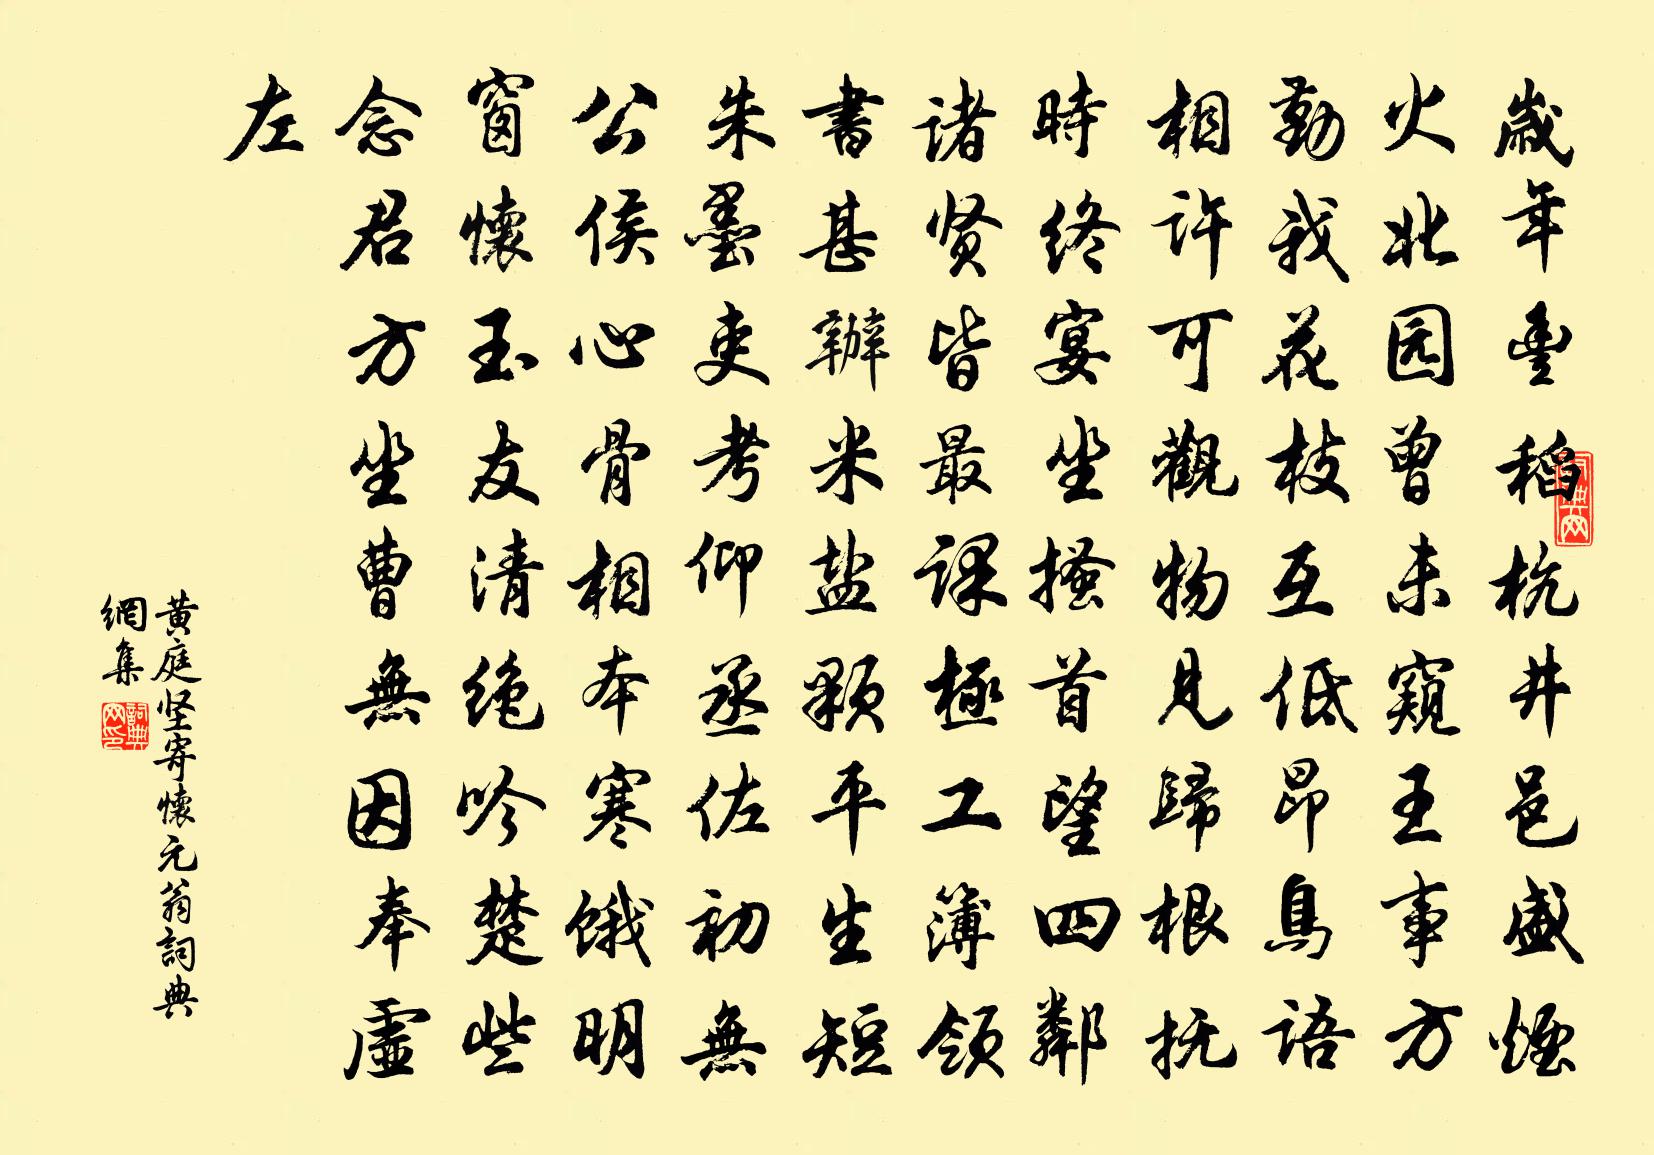 歲年豐稻杭井邑盛煙
火北园曾未窺王事方
勤我花枝互低昂鳥語
相許可觀物見歸根抚
時終宴坐搔首望四鄰
诸贤皆最课極工簿领
書甚辦米盐顆平生短
朱墨吏考仰丞佐初無
公侯心骨相本寒饿明
窗懷玉友清绝吟楚些
念君方坐曹無因奉虛
左
黄庭坚寄懷元翁詞典
網集
詞典网印